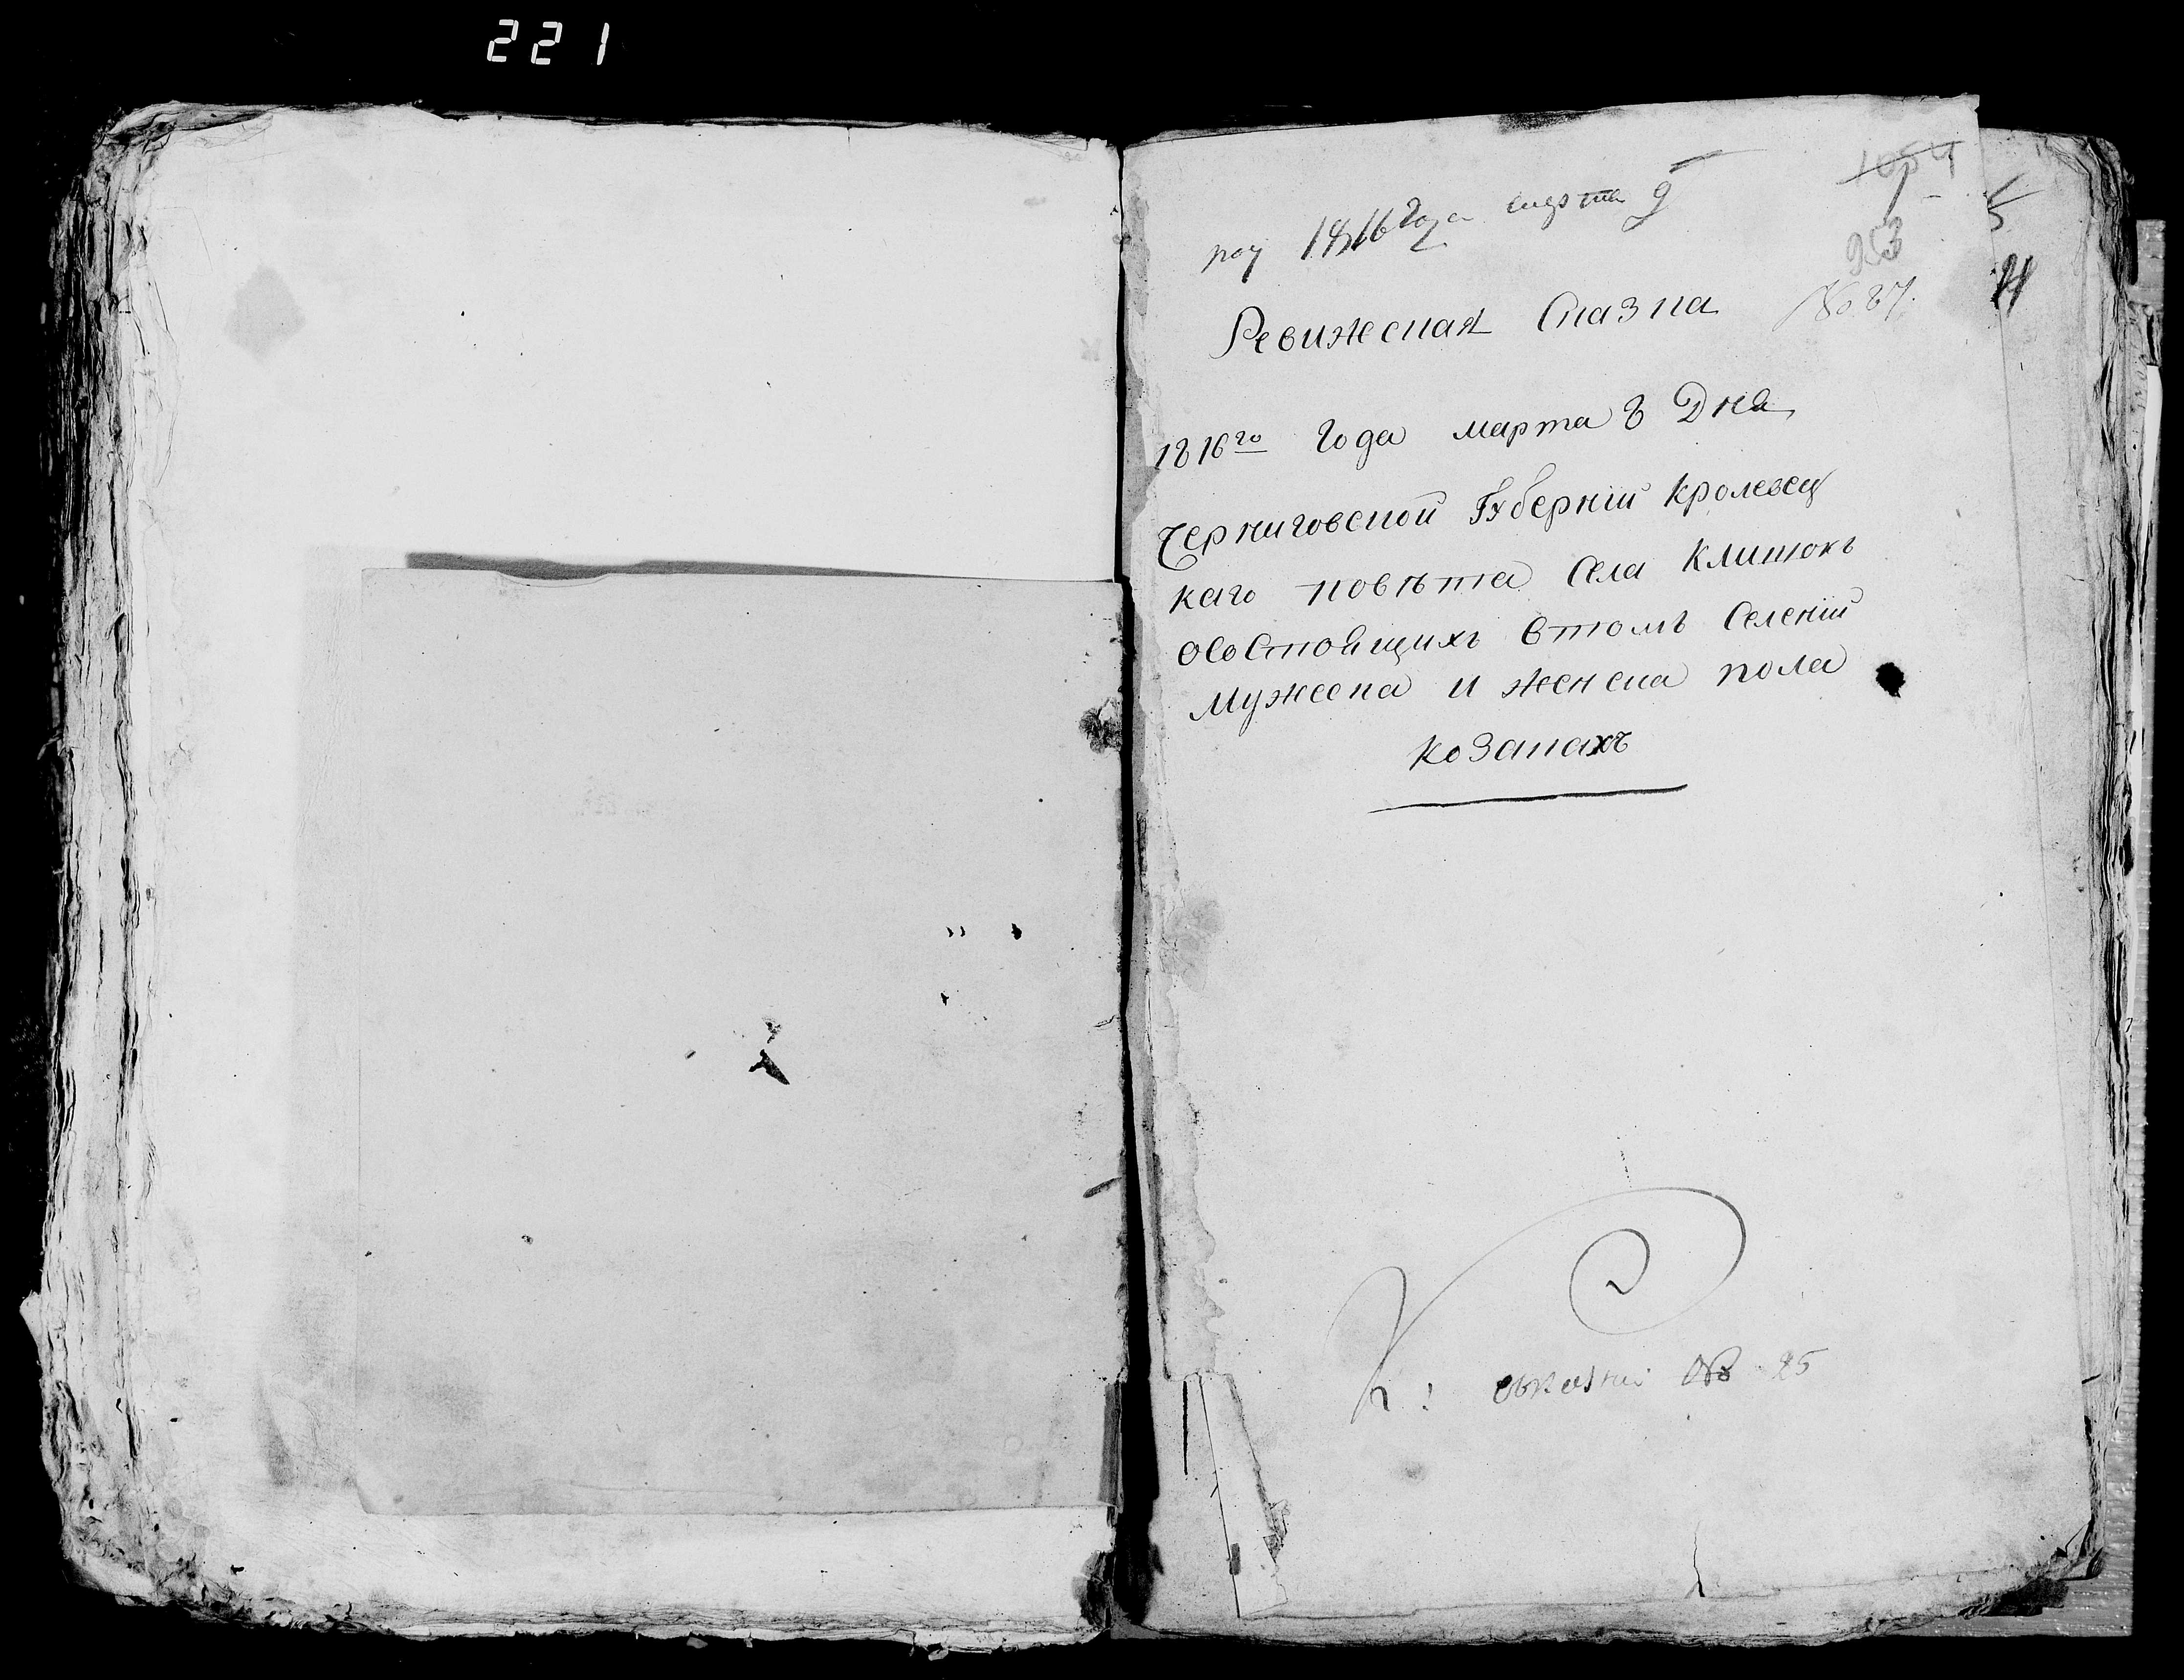 221
пол 1816 Года марта 9
1054
953
№ 87.
Ревижская Сказка
1816го Года марта 8 Дня
Черниговской Губерніи Кролевец
каго повѣта Села Клишокъ
оСоСтоящихъ втомъ Селеніи
мужеска и женска пола
козакахъ
№ 25